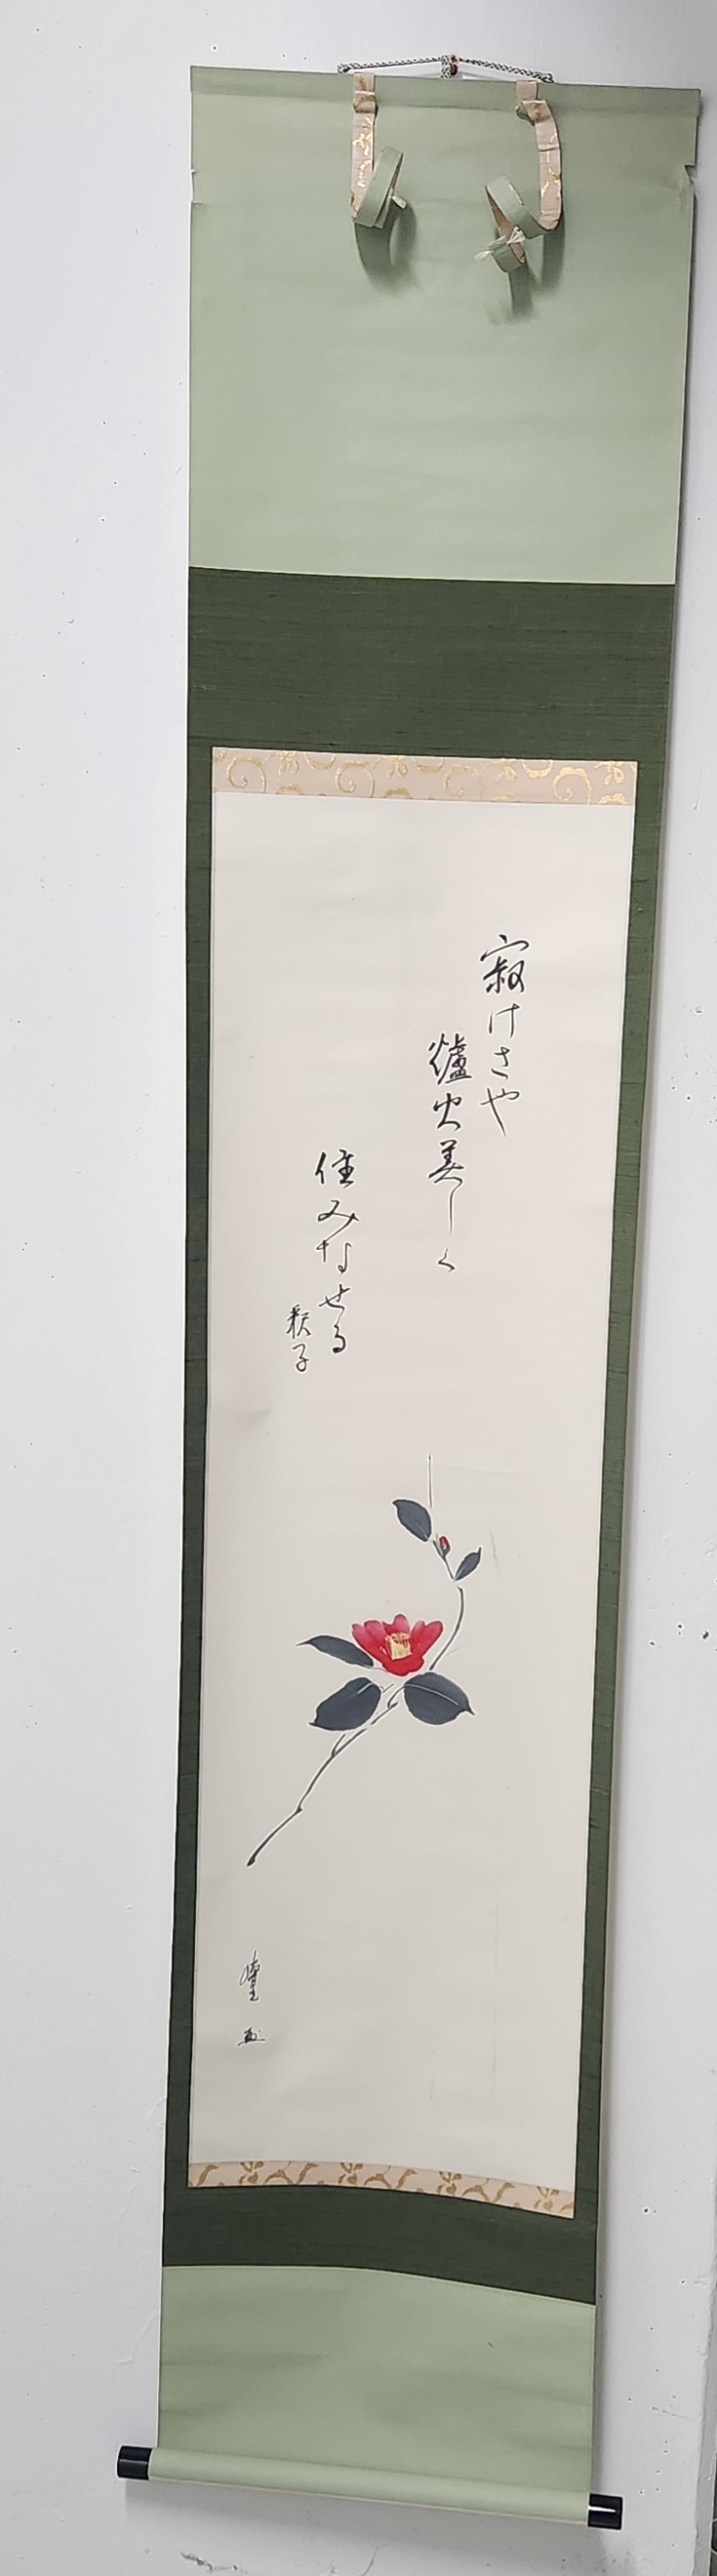 寂けさや
爐火美しく
住みなせる
秋子